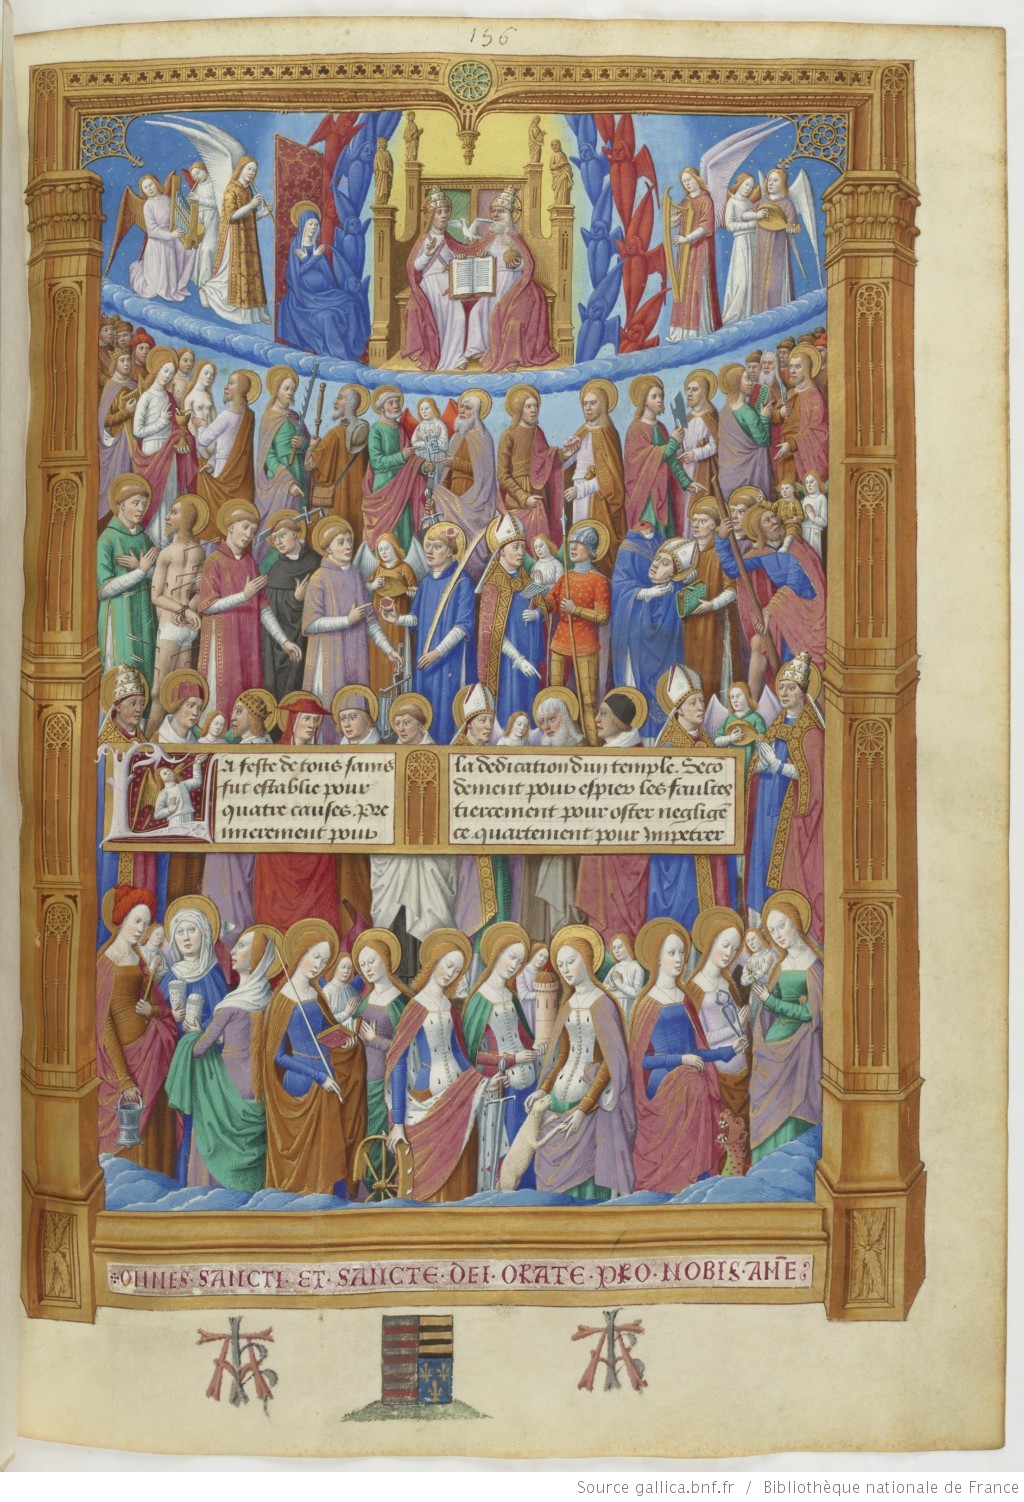 156
La feste de tous sains
fut establie pour
quatre causes. Pre
mierement pour
la dedication dun temple. Secō
dement pour espier les faultes
tiercement pour oster negligē
ce. quartement pour Impetrer
OMNES · SANCTI · ET · SANCTE · DEI · ORATE · PRO · NOBIS · AMĒ
Source gallica.bnf.fr / Bibliothèque nationale de France